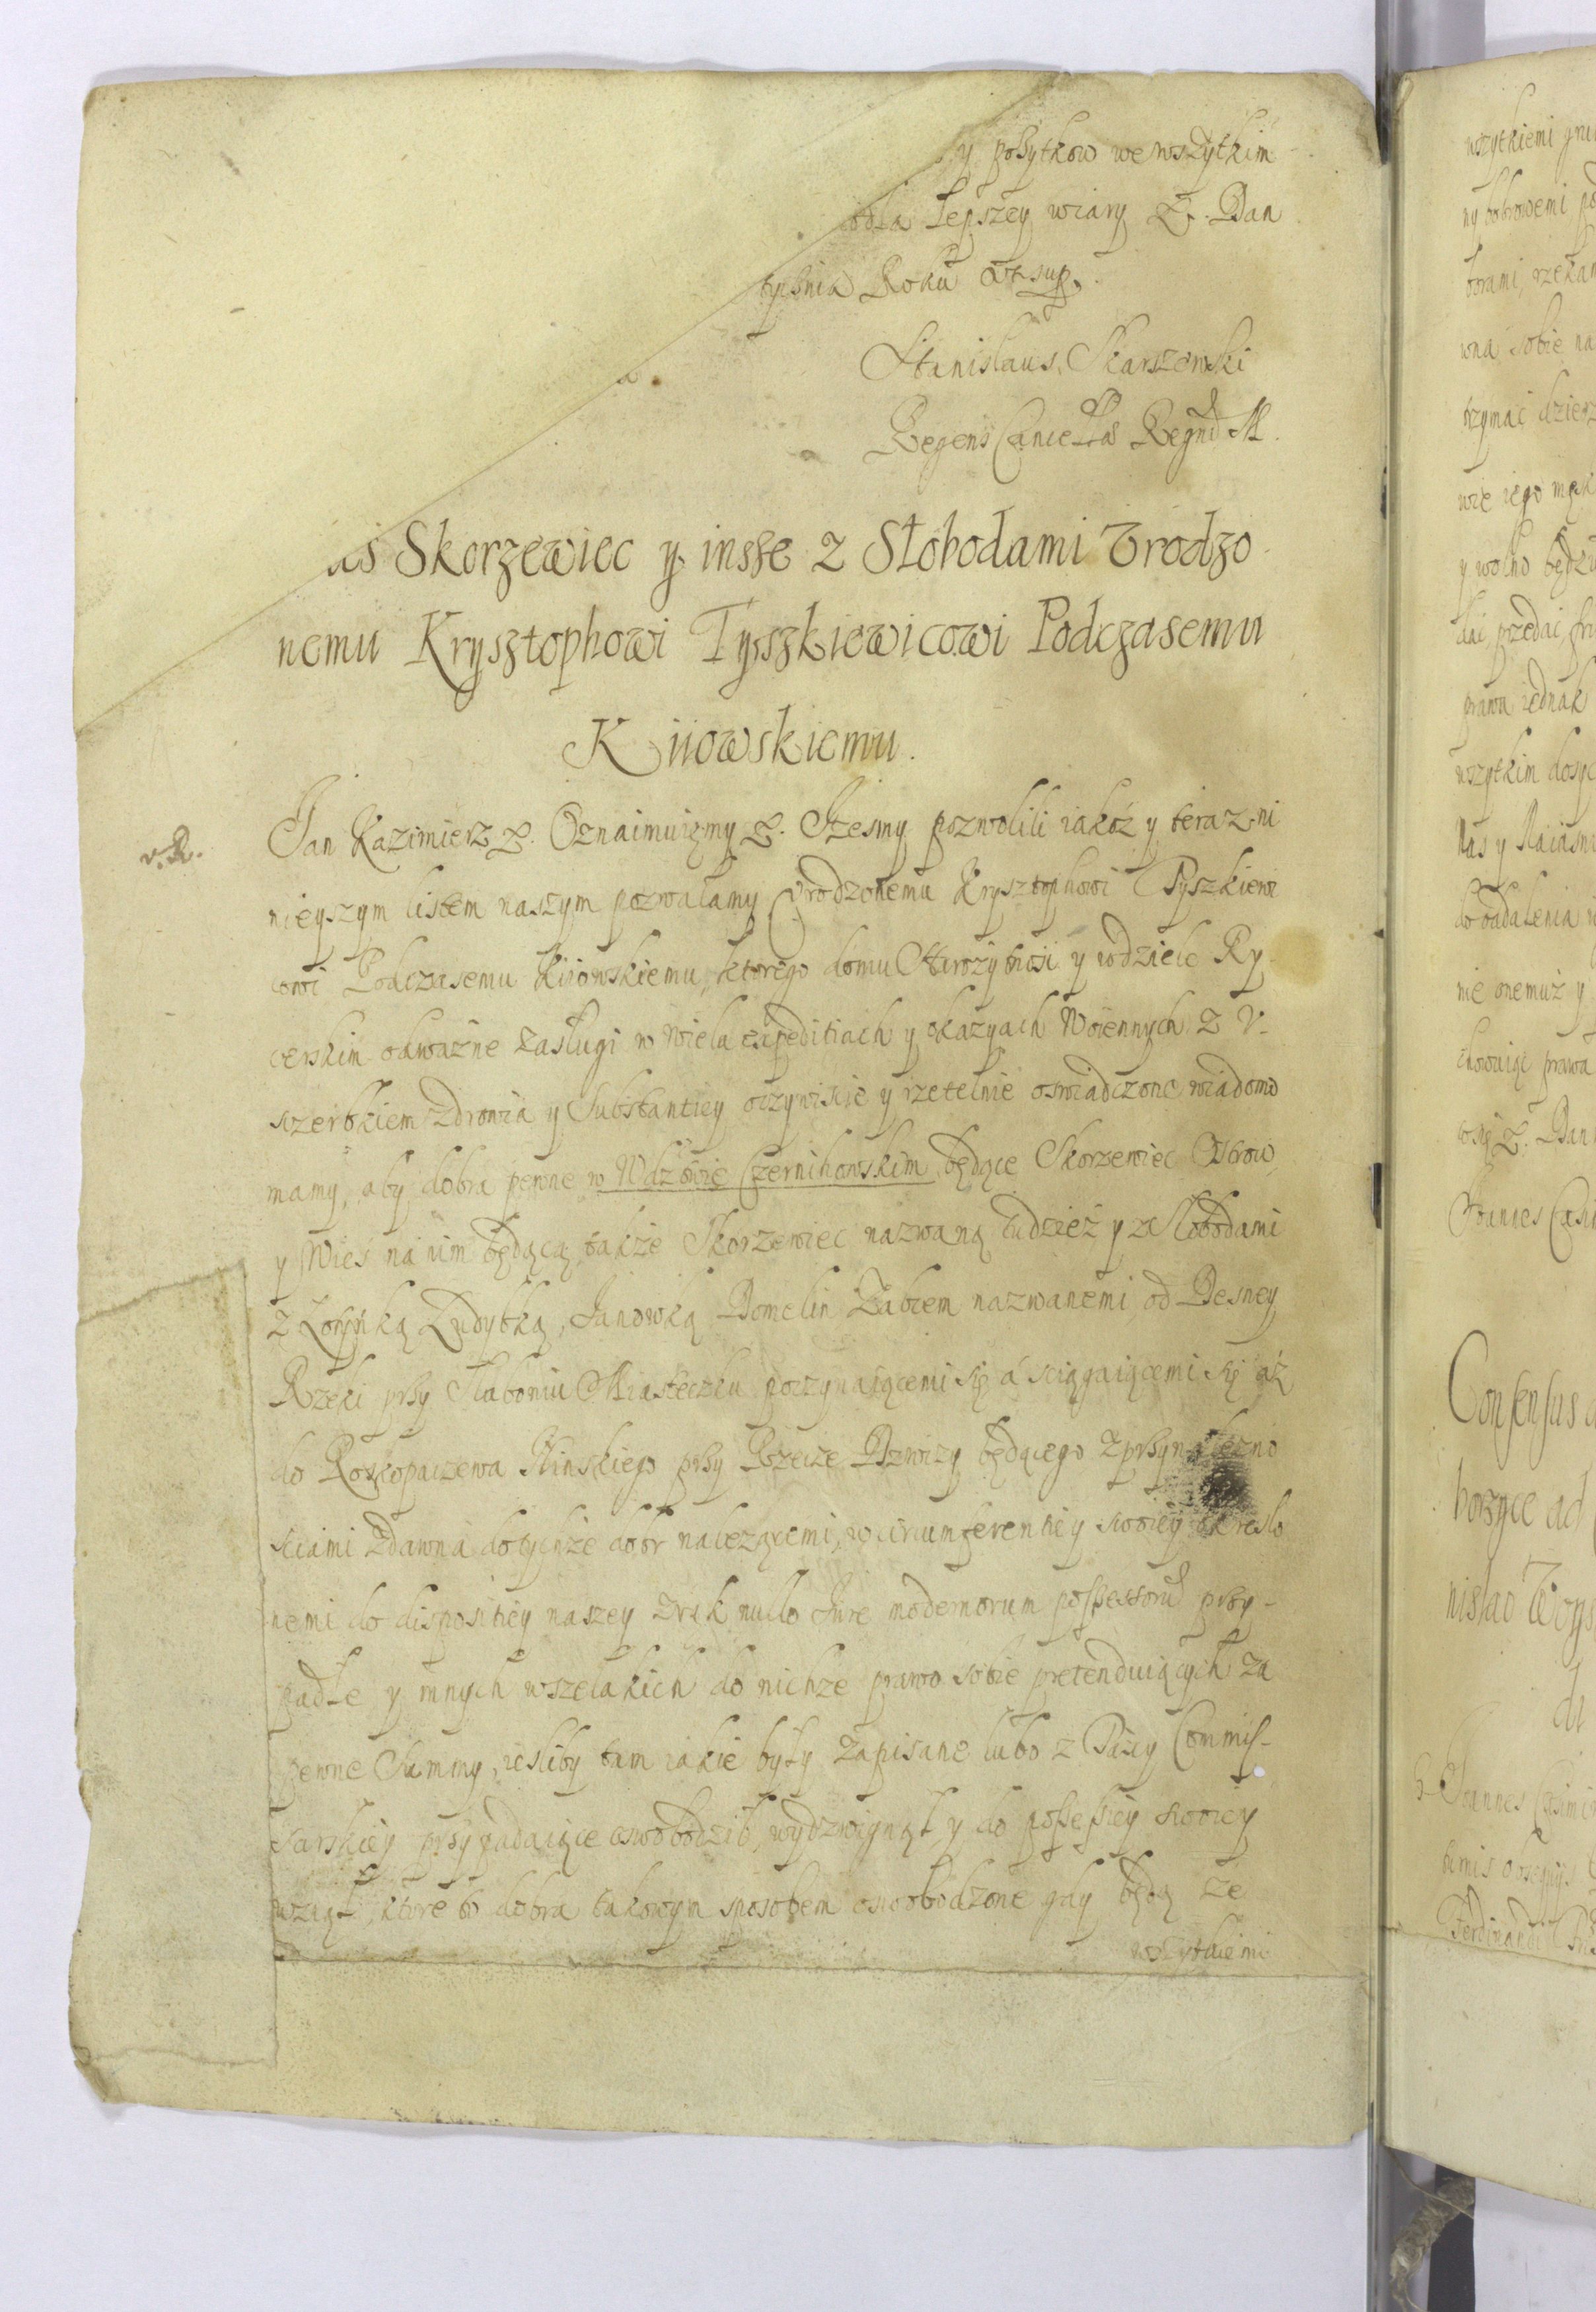 y pożytkow we wszytkim
odla lepszey wiary &. Dan
tycznia Roku ut sup.
Stanislaus Skarszewski
Regens Cancellae Regni M.
Skorzewiec y insze z Słobodami Vrodzo
nemu Krysztophowi Tyszkiewicowi Podczasemu
Kiiowskiemu.
v. R.
Jan Kazimierz &. Oznaimuiemy &. Iżesmy pozwolili iakoż y teraz ni
nieyszym listem naszym pozwalamy Vrodzonemu Krysztophowi Tyszkiewi
cowi Podczasemu Kiiowskiemu, ktorego domu starożytnosi y w dziele Ry
cerskim odważne zasługi w wielu expeditiach y okazyach Woiennych z V-
szczerbkiem zdrowia y Substantiey oczywiscie y rzetelnie oswiadczone wiadomo
mamy, aby dobra pewne w Wdztwie Czernihowskim będące Skorzewiec Ostrow
y Wies na nim będącą także Skorzewiec nazwaną tudzież y z Słobodami
z Łosinką Ludytką, Janowką Domelin Zabrem nazwanemi od Desney
Rzeki przy Slaboniu Miasteczku poczynaiącemi się a sciągaiącemi się aż
do Roskopaczewa Minskiego przy Rzecze Dzwizy będącego z przynależno
sciami zdawna do tychże dobr należącemi, w circumferentiey swoiey okreslo
nemi do dispositiey naszey z rąk nullo Jure modernorum possessorũ przy-
padłe y innych wszelakich do nichże prawo sobie pretenduiących za
pewne Summy, iesliby tam iakie były zapisane lubo z Pacy Commis-
sarskiey przypadaiące oswobodził, wydzwignął y do possessiey swoiey
wziął, ktore to dobra takowym sposobem oswobodzone gdy będą ze
wszytkiemi
wszytkiemi
ny bobrowemi
borami, rzekam
wną sobie na
trzymac dzierz
wie iego
y wolno będzie
dac przedac
prawa iednak
wszytkim dosyc
Nas y Naiasni
do oddalenia
nie onemuż y
chowuiąc prawa
się &. Dan
Joannes Casi
Consensus
horzyce ad
nislao Woys
Joannes Casimi
Ferdinandi